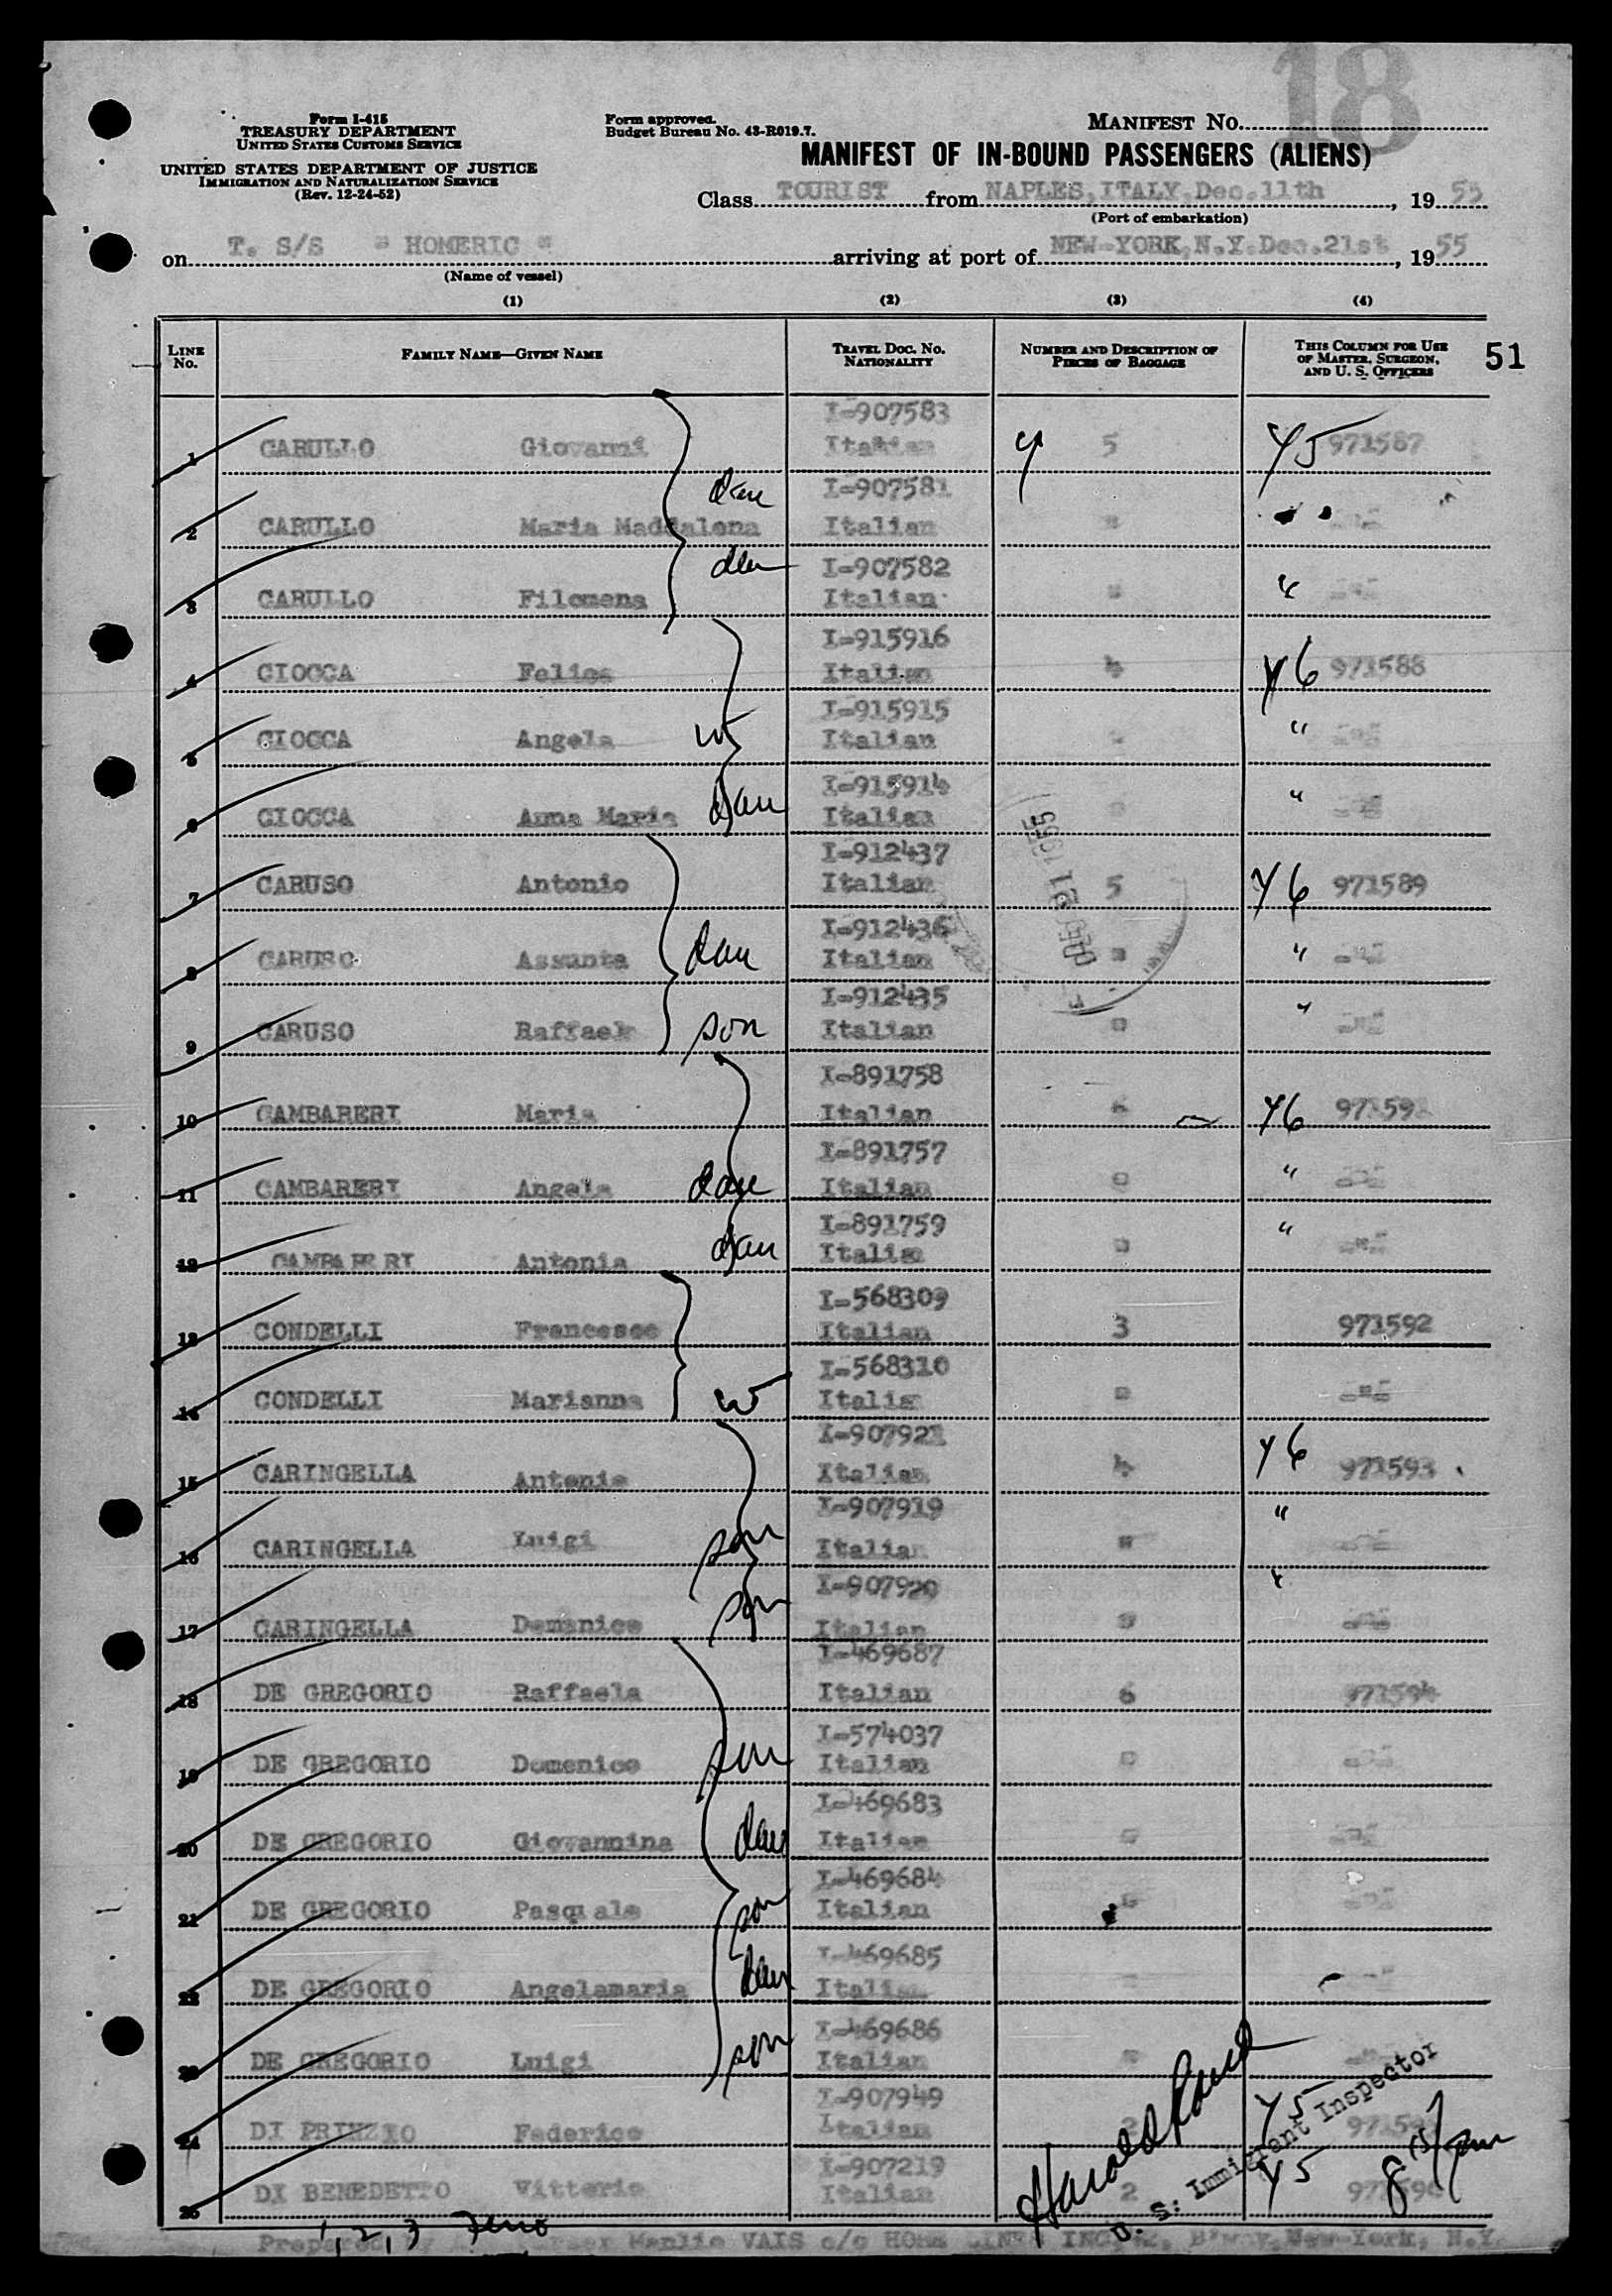 18
Form I-415
TREASURY DEPARTMENT
UNITED STATES CUSTOMS SERVICE
UNITED STATES DEPARTMENT OF JUSTICE
IMMIGRATION AND NATURALIZATION SERVICE
(Rev. 12-24-52)
Form approved.
Budget Bureau No. 43-R019.7.
MANIFEST NO.
MANIFEST OF IN-BOUND PASSENGERS (ALIENS)
Class TOURIST from NAPLES, ITALY, Dec. 11th, 1955
(Port of embarkation)
on T. S/S " HOMERIC " arriving at port of NEW-YORK, N.Y. Dec. 21st, 1955
(Name of vessel)
(1) (2) (3) (4)
LINE No. FAMILY NAME—GIVEN NAME TRAVEL DOC. NO. NATIONALITY NUMBER AND DESCRIPTION OF PIECES OF BAGGAGE THIS COLUMN FOR USE OF MASTER, SURGEON, AND U. S. OFFICERS 51
I-907583
1 CARULLO Giovanni Italian 4 5 Y5 971587
dau I-907581
2 CARULLO Maria Maddalena Italian
I-907582
3 CARULLO Filomena Italian "
I-915916
4 CIOCCA Felice Italian 4 Y6 971588
I-915915
5 CIOCCA Angela w Italian "
I-915914
6 CIOCCA Anna Maria dau Italian "
I-912437
7 CARUSO Antonio Italian 5 Y6 971589
I-912436
8 CARUSO Assunta dau Italian "
I-912435
9 CARUSO Raffaele son Italian "
DEC 21 1955
I-891758
10 GAMBARERI Maria Italian 6 Y6
I-891757
11 GAMBARERI Angela dau Italian "
I-891759
12 GAMBARERI Antonia dau Italian "
I-568309
13 CONDELLI Francesco Italian 3 971592
I-568310
14 CONDELLI Marianna w Italian
I-907921
15 CARINGELLA Antonia Italian 4 Y6 971593
I-907919
16 CARINGELLA Luigi son Italian "
I-907920
17 CARINGELLA Domenico son Italian
I-469687
18 DE GREGORIO Raffaela Italian 6 971594
I-574037
19 DE GREGORIO Domenico son Italian
I-469683
20 DE GREGORIO Giovannina dau Italian
I-469684
21 DE GREGORIO Pasquale son Italian
I-469685
22 DE GREGORIO Angelamaria dau Italian
I-469686
23 DE GREGORIO Luigi son Italian
I-907949
24 DI PRINZIO Federico Italian 2 Y5
I-907219
25 DI BENEDETTO Vittorio Italian 2 Y5
Harold
U. S. Immigrant Inspector
1, 2, 3
Prepared by Manlio VAIS c/o HOME LINES INC, B'way, New-York, N.Y.